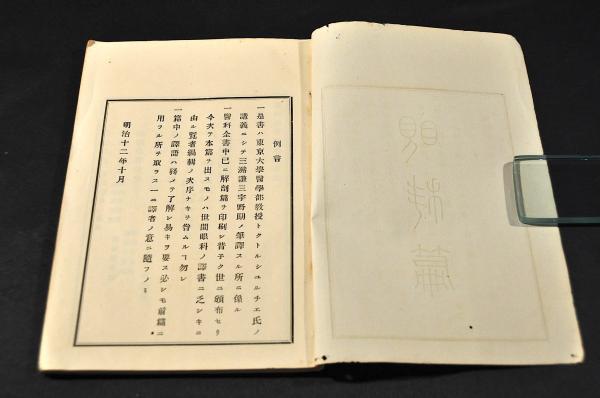 例言
一是書ハ東京大學醫學部教授トクトルシユルチエ氏ノ
講義ニシテ三瀦謙三宇野朗ノ筆譯スル所ニ係ル
一醫科全書中已ニ解剖篇ヲ印刷シ普子ク世ニ頒布セリ
今次テ本篇ヲ出スモノハ世間眼科ノ譯書ニ乏シキニ
由ル覧者編輯ノ次序ナキヲ咎ムルヿ勿レ
一篇中ノ譯語ハ務メテ了解シ易キヲ要ス必シモ前篇ニ
用フル所ヲ取ラス一ニ譯者ノ意ニ隨フノミ
明治十二年十月